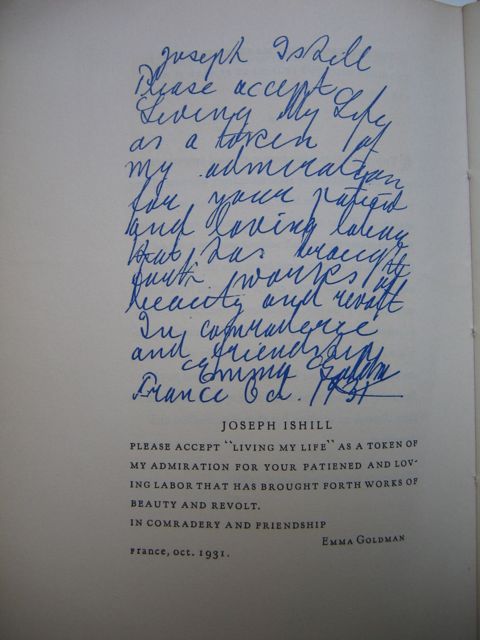 Joseph Ishill
Please accept
Living My Life
as a token of
my admiration
for your patied
and loving labour
that has brought
forth works of
beauty and revolt
In comraderie
and friendship
Emma Goldman
France Oct. 1931
JOSEPH ISHILL
PLEASE ACCEPT "LIVING MY LIFE" AS A TOKEN OF
MY ADMIRATION FOR YOUR PATIENED AND LOV-
ING LABOR THAT HAS BROUGHT FORTH WORKS OF
BEAUTY AND REVOLT.
IN COMRADERY AND FRIENDSHIP
EMMA GOLDMAN
France, oct. 1931.